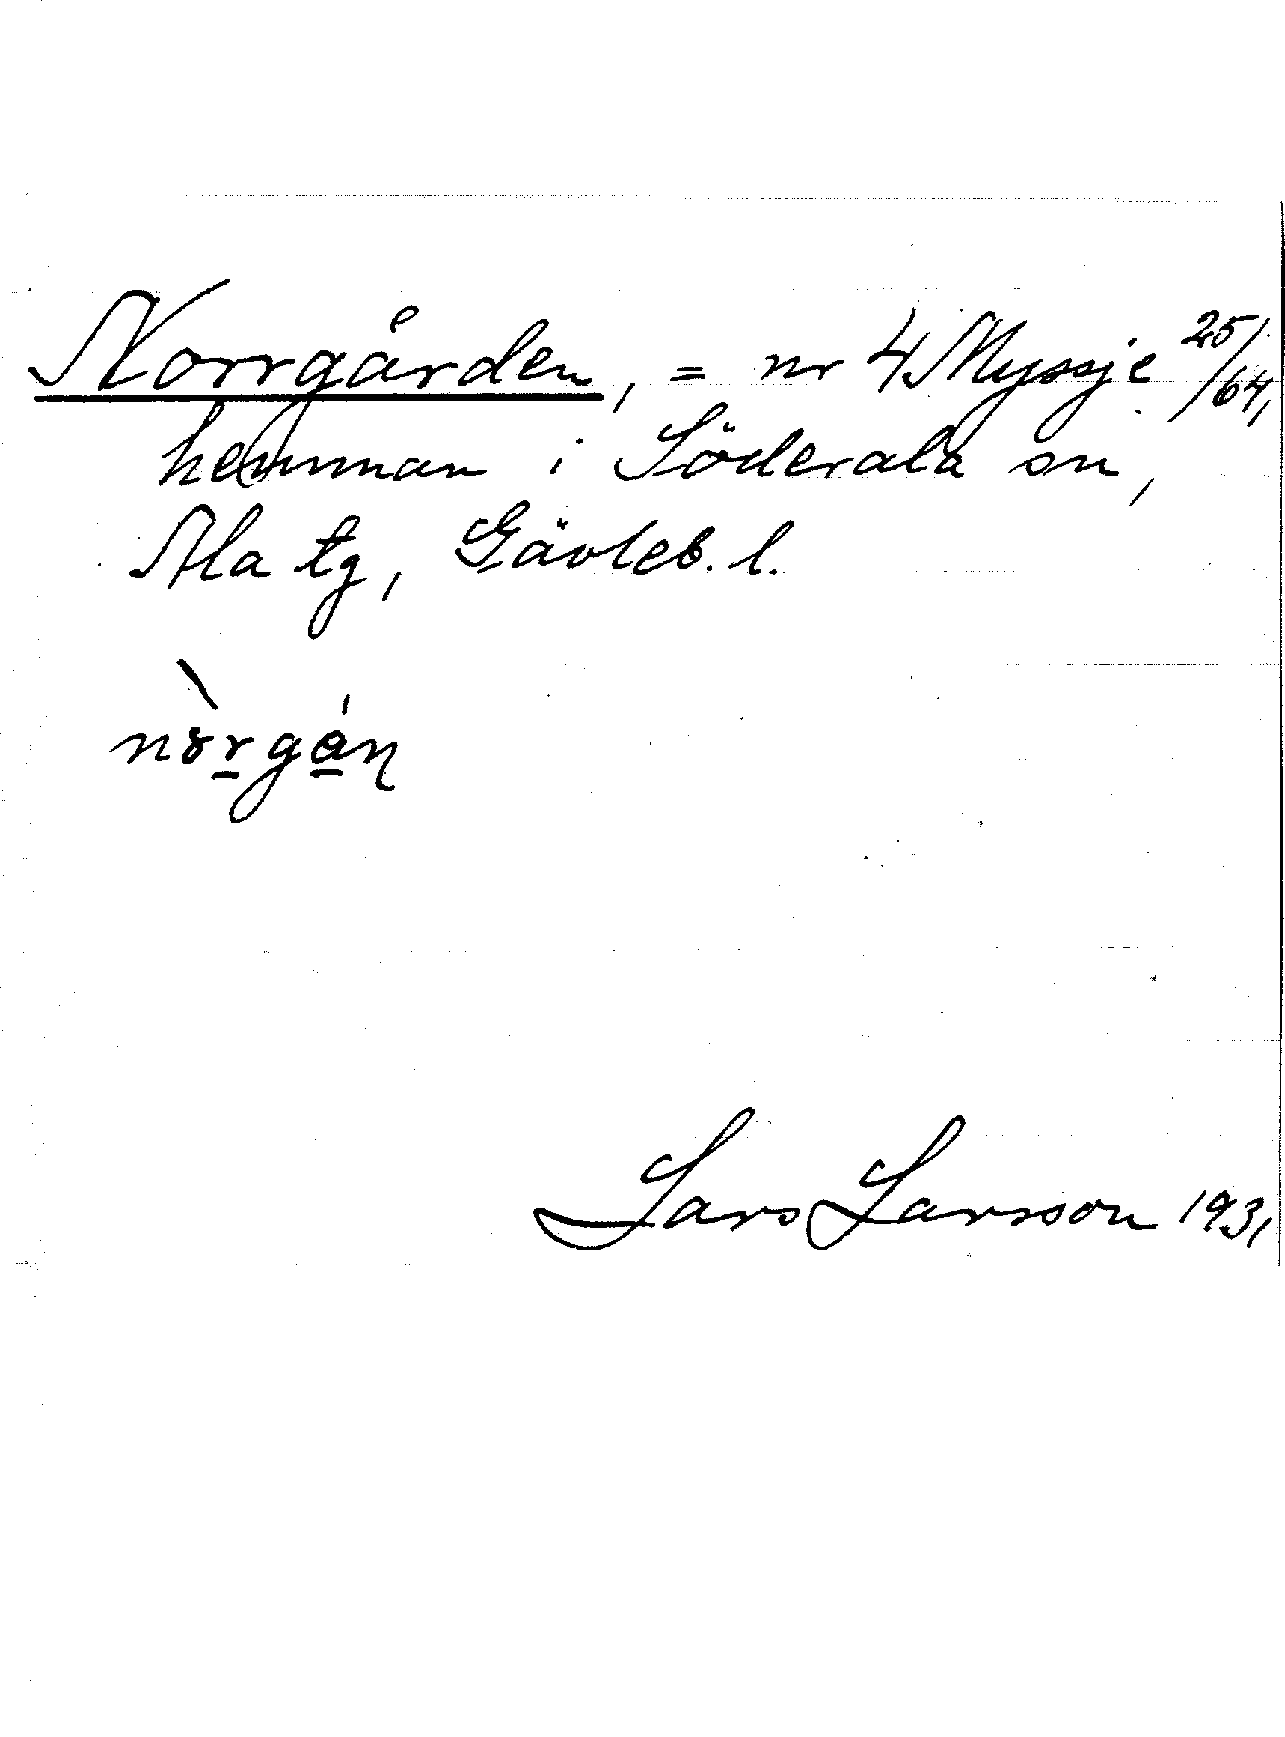 Norrgården, = nr 4 Myssje 25/64,
hemman i Söderala sn,
Ala tg, Gävleb. l.
nòrgån
Lars Larsson 1931